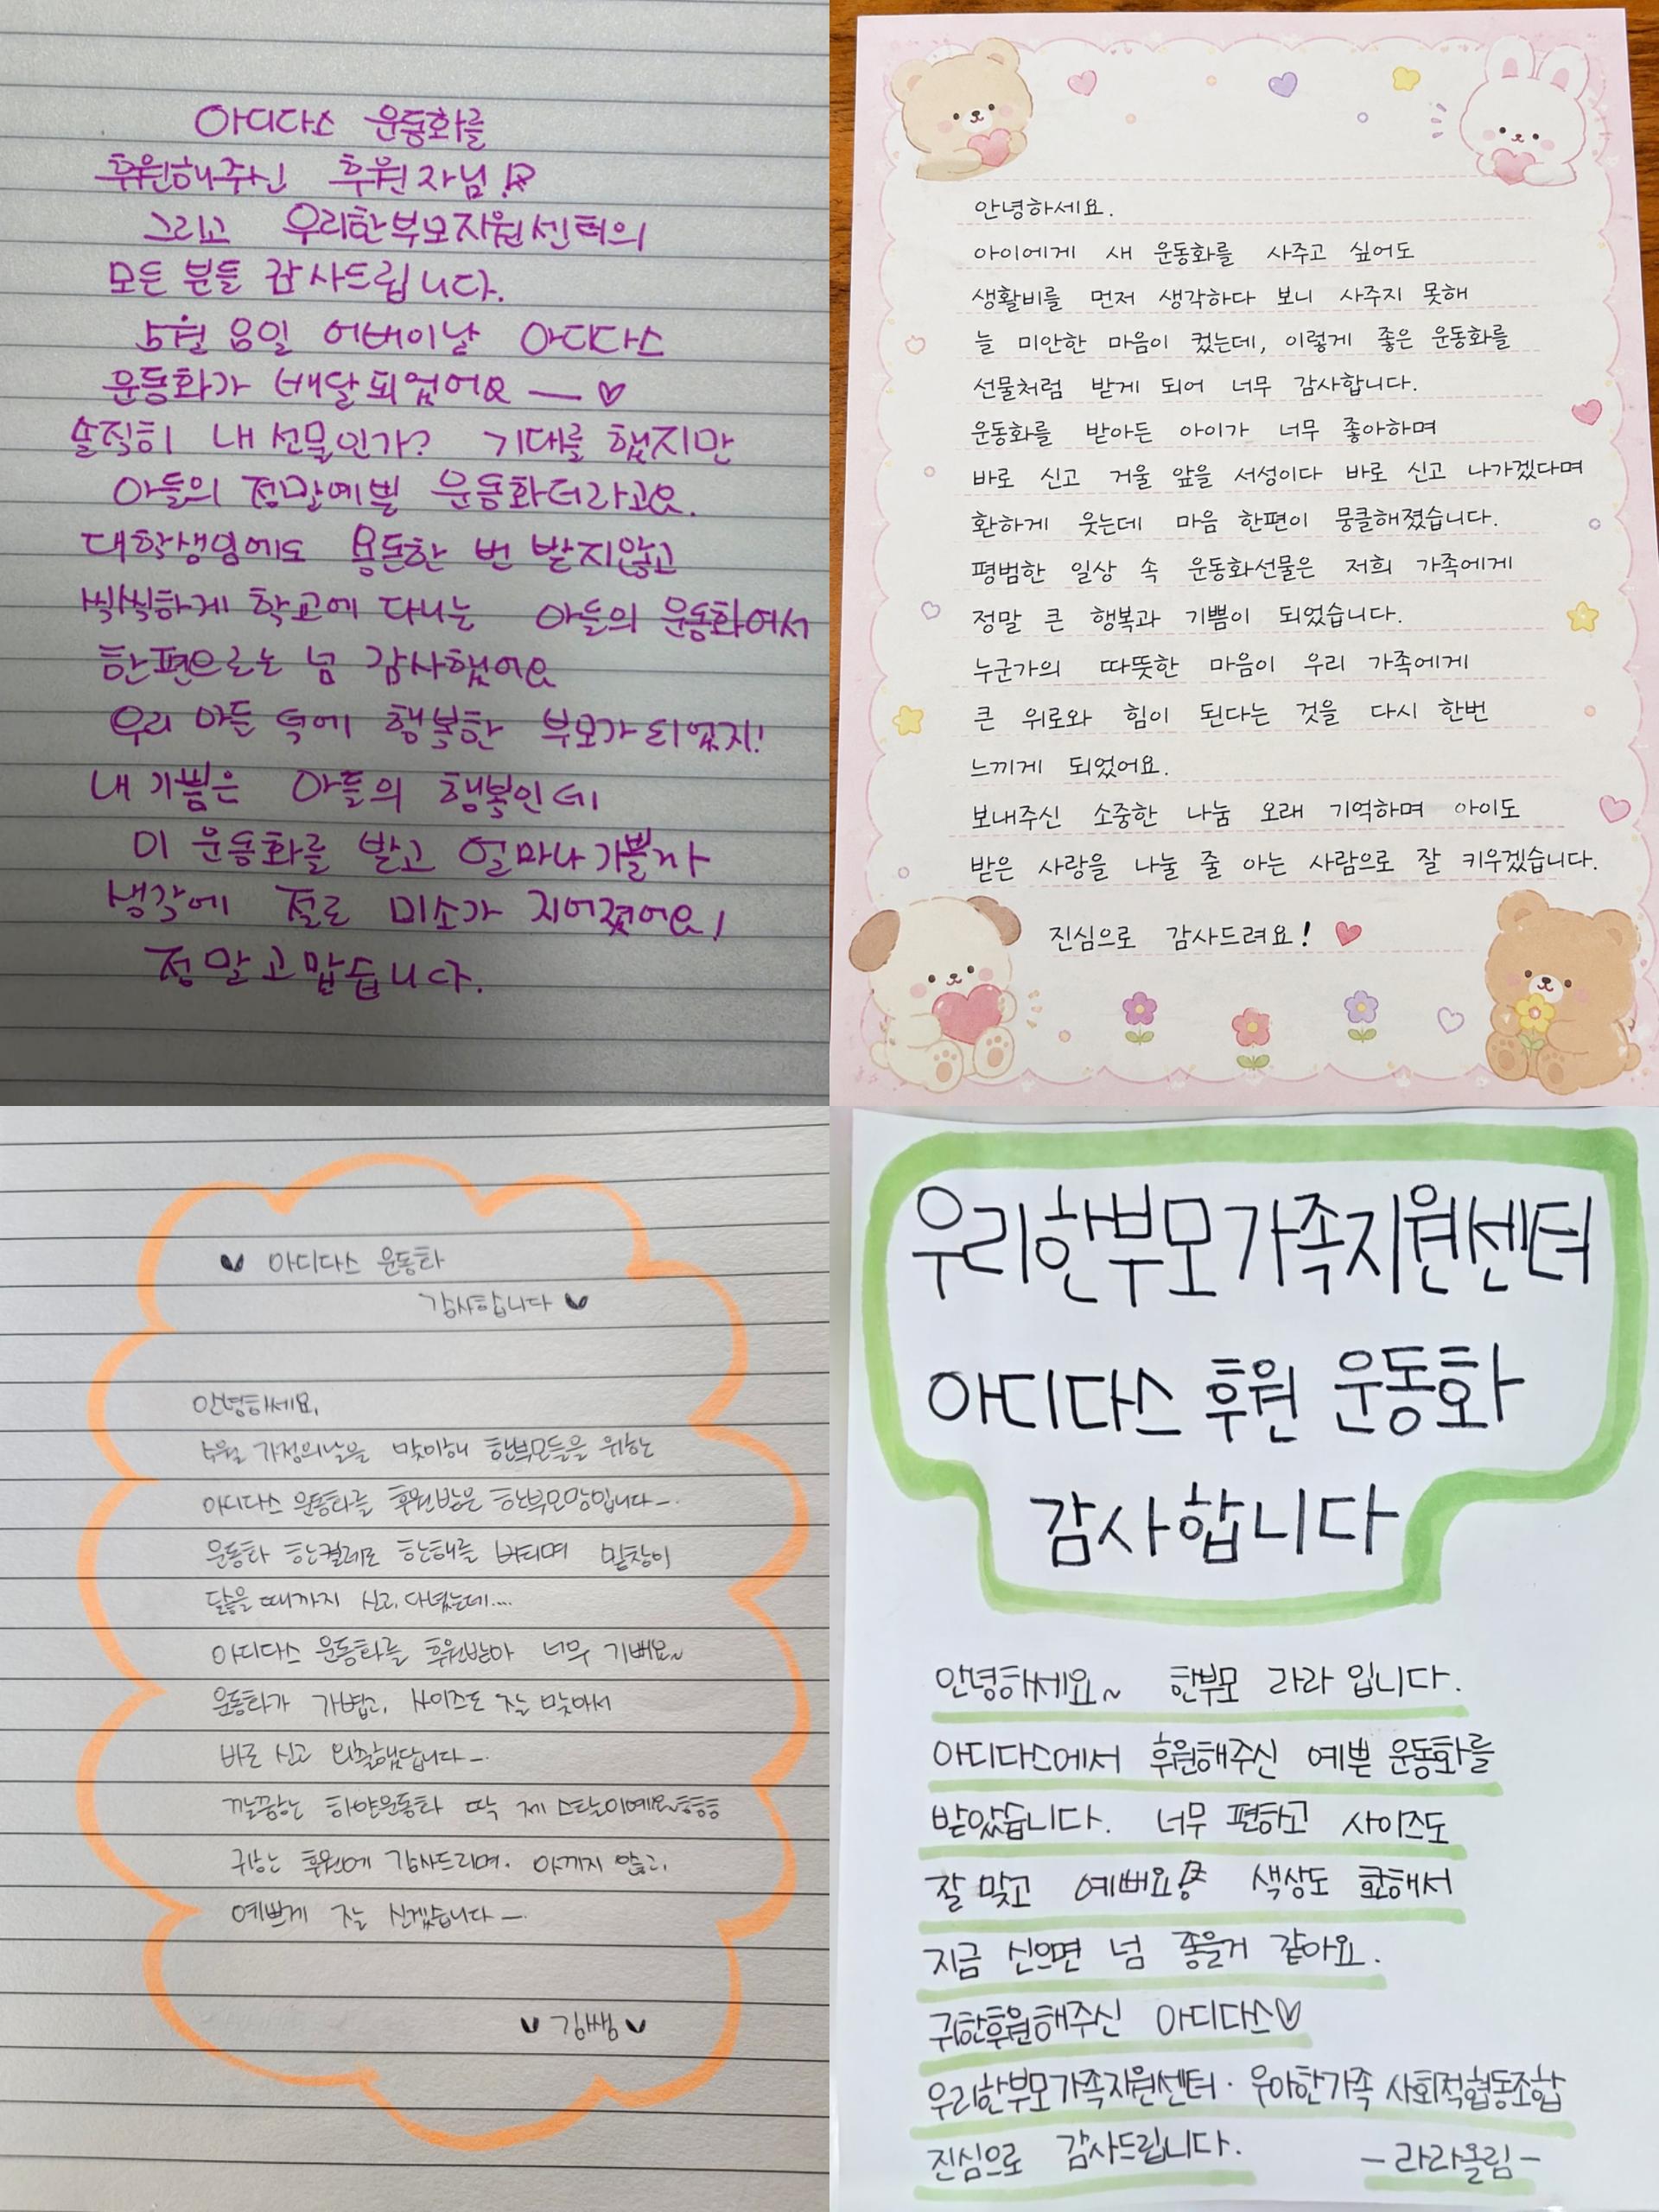 아디다스 운동화를
후원해주신 후원자님!
그리고 우리한부모지원센터의
모든 분들 감사드립니다.
5월 8일 어버이날 아디다스
운동화가 배달되었어요 — ♡
솔직히 내 선물인가? 기대를 했지만
아들의 정말예쁜 운동화더라고요.
대학생임에도 용돈한 번 받지않고
씩씩하게 학교에 다니는 아들의 운동화여서
한편으로는 넘 감사했어요
우리 아들 덕에 행복한 부모가 되었지!
내 기쁨은 아들의 행복인데
이 운동화를 받고 얼마나 기쁠까
생각에 절로 미소가 지어졌어요!
정말고맙습니다.
안녕하세요.
아이에게 새 운동화를 사주고 싶어도
생활비를 먼저 생각하다 보니 사주지 못해
늘 미안한 마음이 컸는데, 이렇게 좋은 운동화를
선물처럼 받게 되어 너무 감사합니다.
운동화를 받아든 아이가 너무 좋아하며
바로 신고 거울 앞을 서성이다 바로 신고 나가겠다며
환하게 웃는데 마음 한편이 뭉클해졌습니다.
평범한 일상 속 운동화선물은 저희 가족에게
정말 큰 행복과 기쁨이 되었습니다.
누군가의 따뜻한 마음이 우리 가족에게
큰 위로와 힘이 된다는 것을 다시 한번
느끼게 되었어요.
보내주신 소중한 나눔 오래 기억하며 아이도
받은 사랑을 나눌 줄 아는 사람으로 잘 키우겠습니다.
진심으로 감사드려요! ❤
♥ 아디다스 운동화
감사합니다 ♥
안녕하세요,
5월 가정의날을 맞이해 한부모들을 위한
아디다스 운동화를 후원받은 한부모맘입니다—.
운동화 한켤레로 한해를 버티며 밑창이
닳을 때까지 신고, 다녔는데....
아디다스 운동화를 후원받아 너무 기뻐요~
운동화가 가볍고, 사이즈도 잘 맞아서
바로 신고 외출했답니다—.
깔끔한 하얀운동화 딱 제 스탈이예요~ㅎㅎㅎ
귀한 후원에 감사드리며. 아끼지 않고,
예쁘게 잘 신겠습니다—.
♥ 김쌤 ♥
우리한부모가족지원센터
아디다스 후원 운동화
감사합니다
안녕하세요~ 한부모 라라 입니다.
아디다스에서 후원해주신 예쁜 운동화를
받았습니다. 너무 편하고 사이즈도
잘 맞고 예뻐요 색상도 화해서
지금 신으면 넘 좋을거 같아요.
귀한후원해주신 아디다스♡
우리한부모가족지원센터 · 우아한가족 사회적협동조합
진심으로 감사드립니다. -라라올림-